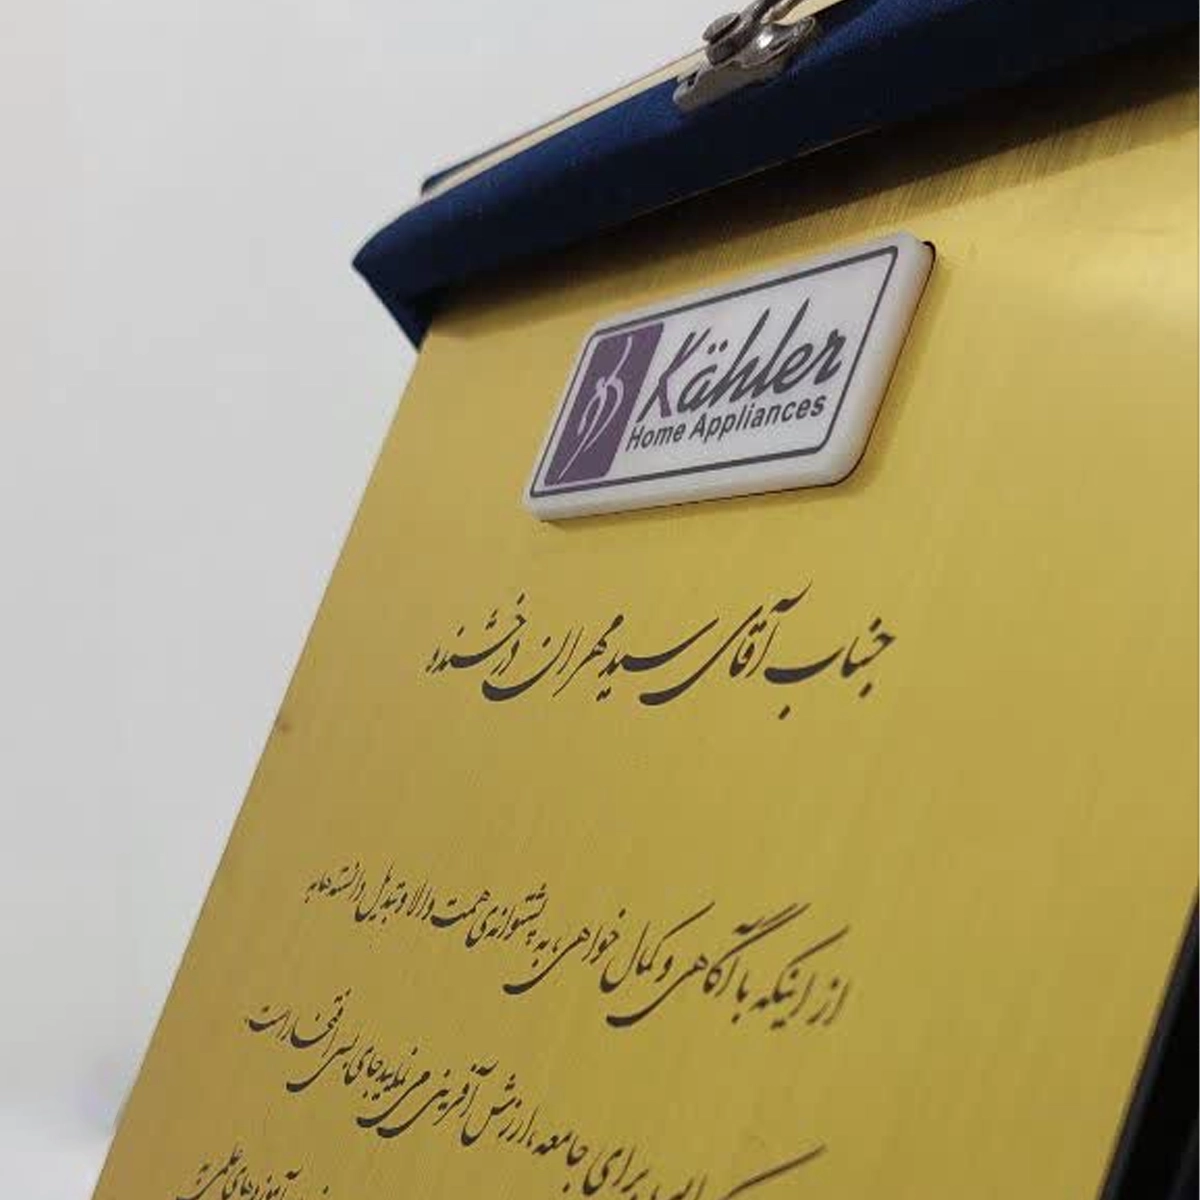 Kähler
Home Appliances
جناب آقای سید مهران درخشنده
از اینکه با آگاهی و کمال خواهی، به پشتوانه‌ی همت والا و تبدیل دانسته ها به
برای جامعه، ارزش آفرینی می نمایید جای بسی افتخار است.
آموزه‌های علمی